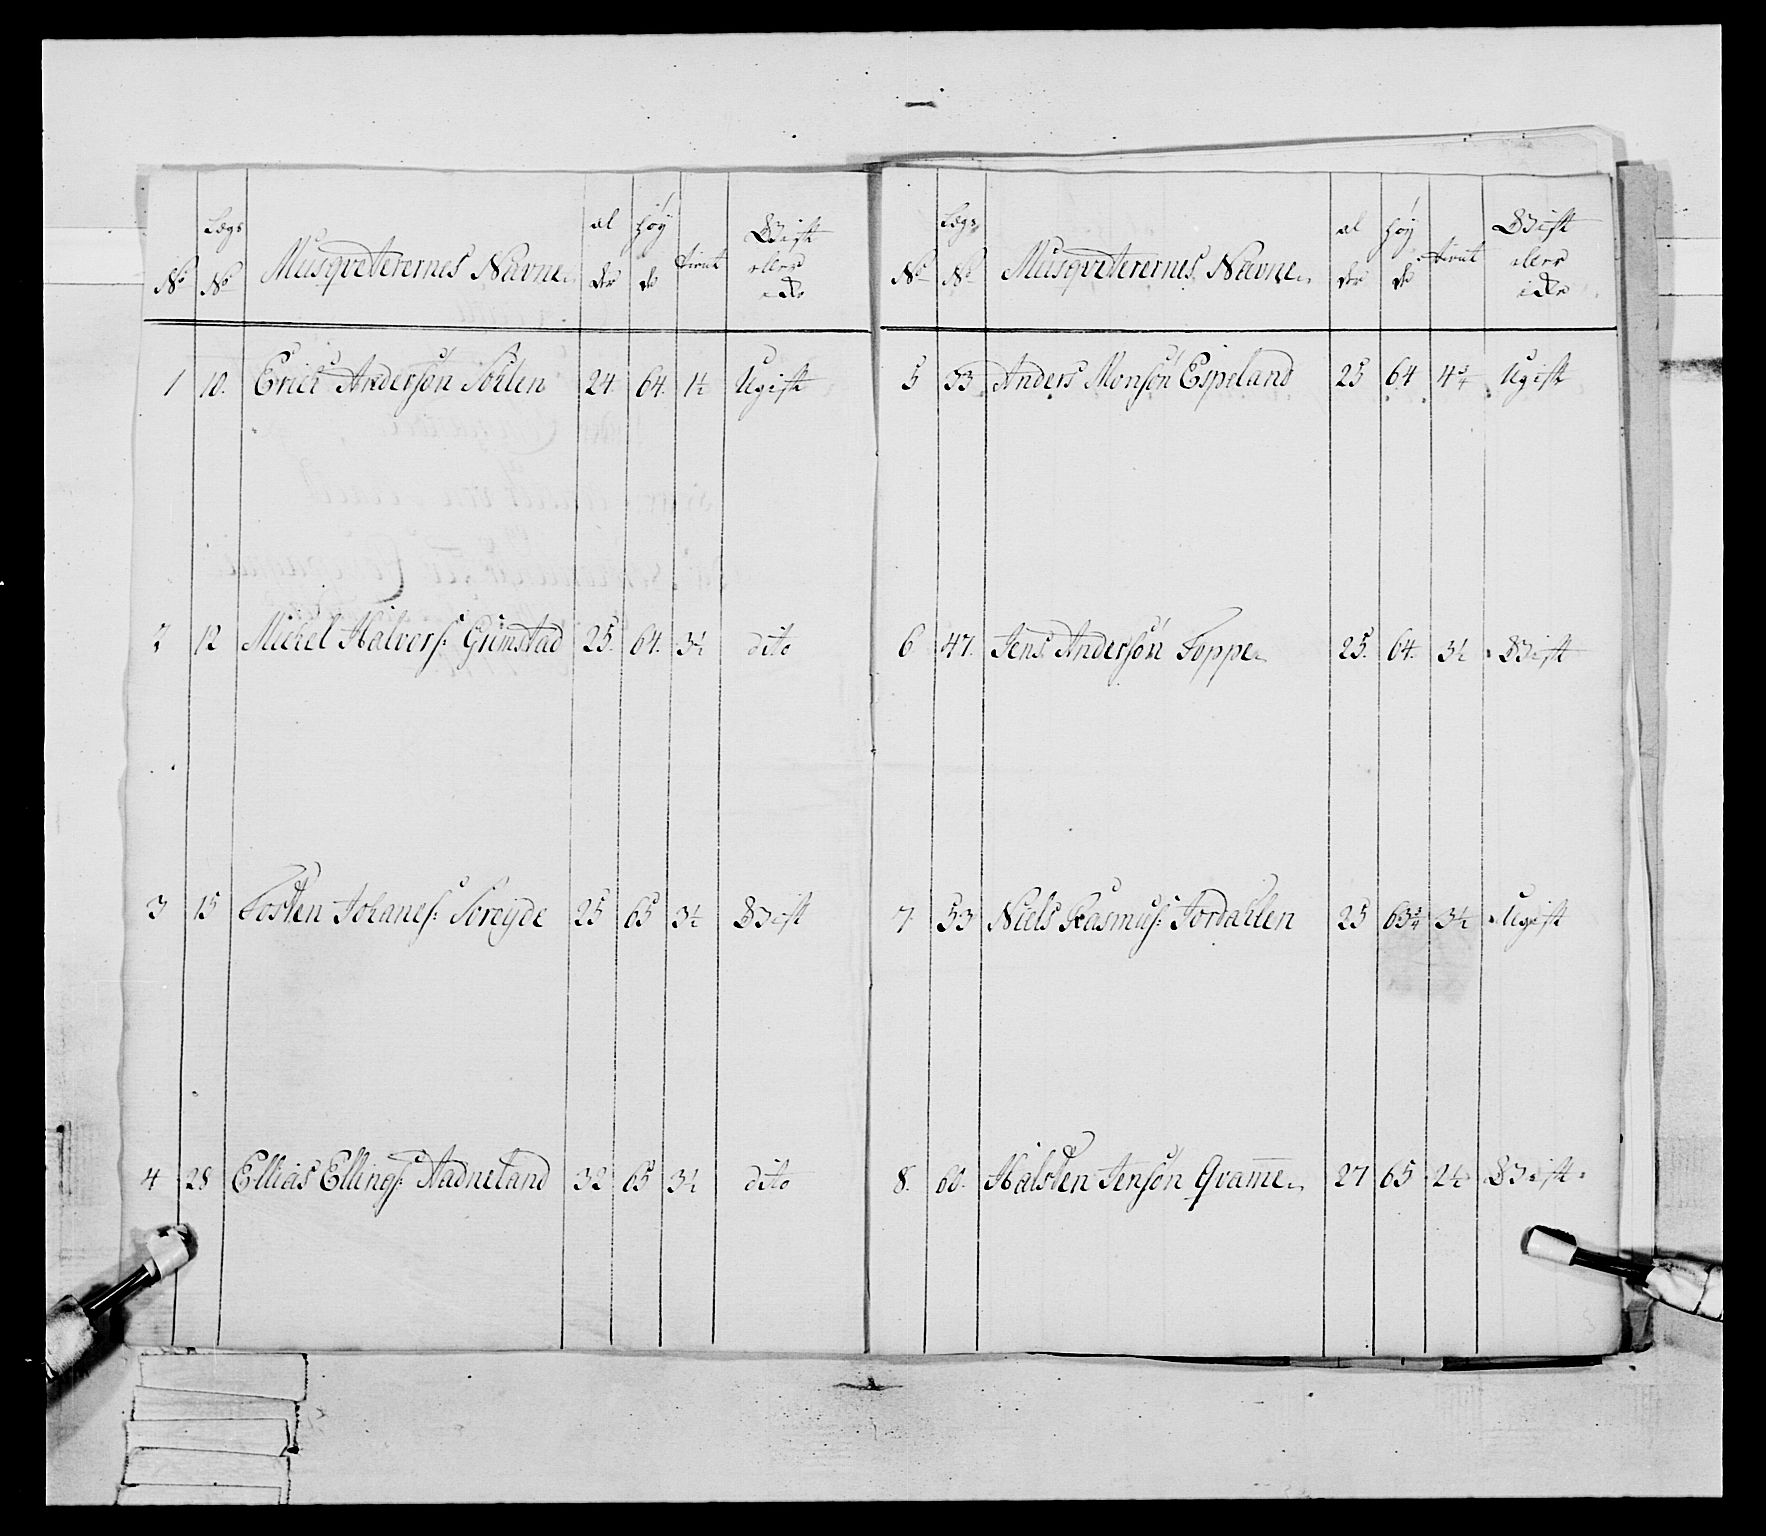 No Lægs No Musqveterernes Navne alder Høyde tient Gift eller icke
1 10. Erich Andersøn Solen 24 64. 1½ Ugift
2 12 Michel Halvors: Grimstad 25. 64. 3½ dito
3 15 Tosten Johanes: Soreyde 25 65 3½ Gift
4 28 Ellias Ellings: Aadneland 32 65 3½ dito
No Lægs No Musqveterernes Navne alder Høyde tient Gift eller icke
5 33 Anders Monsøn Espeland 25 64 Ugift
6 47. Jens Andersøn Toppe 25. 64. 3½ Gift
7. 53 Niels Rasmus: Jordahlen 25 63¾ 3½ Ugift
8. 60. Halsten Jensøn Qvamme 27 65 2½ Gift